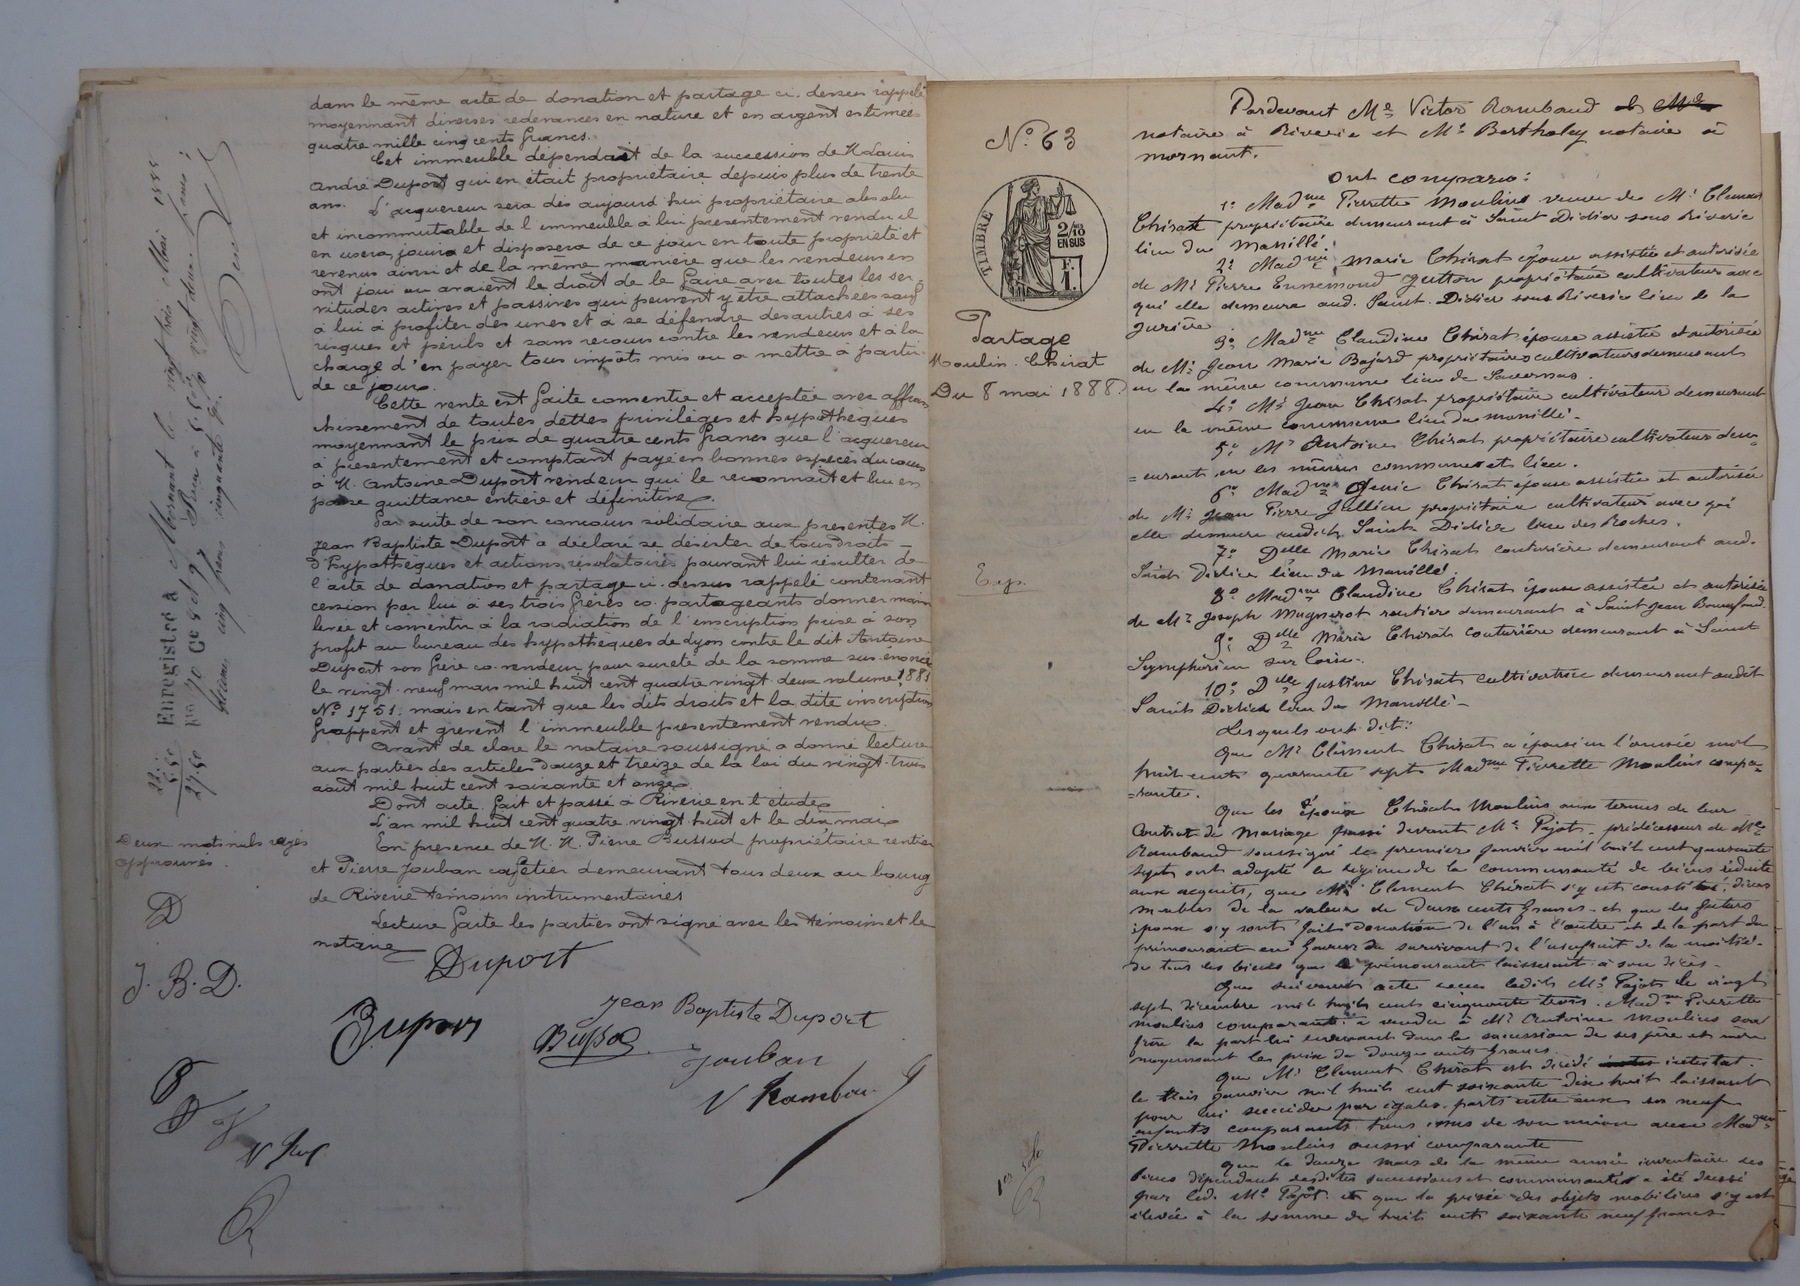 dans le même acte de donation et partage ci. dessus rappelé
moyennant diverses redevances en nature et en argent estimées
quatre mille cinq cents francs.
Cet immeuble dépendait de la succession de M Louis
André Duport qui en était propriétaire depuis plus de trente
ans.
L'acquereur sera dès aujourd'hui propriétaire absolu
et incommutable de l'immeuble à lui présentement vendu il
en usera, jouira et disposera de ce jour en toute propriété et
revenus ainsi et de la même manière que les vendeurs en
ont joui ou avaient le droit de le faire avec toutes les ser
vitudes actives et passives qui peuvent y être attachées sauf
à lui à profiter des unes et à se défendre des autres à ses
risques et périls et sans recours contre les vendeurs et à la
charge d'en payer tous impots mis ou a mettre à partir
de ce jour.
Cette vente est faite consentie et acceptée avec affran
chissement de toutes dettes privilèges et hypothèques
moyennant le prix de quatre cents francs que l'acquereur
à présentement et comptant payé en bonnes espèces du cours
à M. Antoine Duport vendeur qui le reconnait et lui en
passe quittance entière et définitive.
Par suite de son concours solidaire aux presentes M.
Jean Baptiste Duport a déclaré se désister de tous droits
d'hypothèques et actions résolutoires pouvant lui résulter de
l'acte de donation et partage ci. dessus rappelé contenant
cession par lui à ses trois frères co. partageants donner main
levée et consentir à la radiation de l'inscription prise à son
profit au bureau des hypothèques de Lyon contre le dit Antoine
Duport son frère co. vendeur pour sureté de la somme sus. énoncée
le vingt. neuf mars mil huit cent quatre vingt. deux volume 1881
N° 1751. mais en tant que les dits droits et la dite inscription
frappent et grèvent l'immeuble présentement vendu.
Avant de clore le notaire soussigné a donné lecture
aux parties des articles douze et treize de la loi du vingt. trois
août mil huit cent soixante et onze.
Dont acte. fait et passé à Riverie en l'étude
L'an mil huit cent quatre vingt huit et le dix mai
En présence de M. M. Pierre Bussod propriétaire rentier
et Pierre Jouban cafetier demeurant tous deux au bourg
de Riverie témoins instrumentaires
Lecture faite les parties ont signé avec les témoins et le
notaire
Duport
Jean Baptiste Duport
Duport
Jouban
V Rambaud
Enregistré à Mornant le vingt trois Mai 1888
Deux mots nuls rayés
approuvés.
D
J. B. D.
N° 63
TIMBRE
2/10
EN SUS
F.
1.
Partage
Moulin. Chirat
Du 8 mai 1888.
Exp.
Pardevant Me Victor Rambaud
notaire à Riverie et Me Bertholey notaire à
mornant.
Ont comparu:
1° Madme Pierrette Moulins veuve de Mr Clément
Chirat propriétaire demeurant à Saint Didier sous Riverie
lieu du Marsillé.
2° Madme Marie Chirat épouse assistée et autorisée
de Mr Pierre Ennemond Gutton propriétaire cultivateurs avec
qui elle demeure aud. Saint. Didier sous Riverie lieu de la
3° Madme Claudine Chirat épouse assistée et autorisée
de Mr Jean Marie Bajard propriétaires cultivateurs demeurant
en la même commune lieu de
4° Mr Jean Chirat propriétaire cultivateur demeurant
en la même commune lieu du Marsillé.
5° Mr Antoine Chirat propriétaire cultivateur dem=
=eurant en les mêmes commune et lieu.
6° Madme Chirat épouse assistée et autorisée
de Mr Jean Pierre Jullien propriétaire cultivateur avec qui
elle demeure audit Saint Didier lieu des Roches.
7° Delle Marie Chirat couturière demeurant aud.
Saint Didier lieu du Marsillé.
8° Madme Claudine Chirat épouse assistée et autorisée
de Mr Joseph Mugnerot rentier demeurant à Saint Jean Bonnefond
9° Delle Marie Chirat couturière demeurant à Saint
Symphorien sur Coise.
10° Delle Justine Chirat cultivatrice demeurant audit
Saint Didier lieu du Marsillé
Lesquels ont dit:
Que Mr Clément Chirat a épousé en l'année mil
huit cent quarante sept Madme Pierrette Moulins compa=
=rante.
Que les époux Chirat Moulins aux termes de leur
Contrat de Mariage passé devant Me Pajot prédécesseur de Me
Rambaud soussigné le premier janvier mil huit cent quarante
sept ont adopté le régime de la communauté de biens réduite
aux acquets, que Mr Clément Chirat s'y est constitué, divers
meubles de la valeur de Deux cents francs. et que les futurs
époux s'y sont fait donation de l'un à l'autre et de la part du
prémourant en faveur du survivant de l'usufruit de la moitié
de tous les biens que le prémourant laisserait à son décès.
Que suivant acte reçu ledit Me Pajot le vingt
sept décembre mil huit cent cinquante trois. Madme Pierrette
Moulins comparante a vendu à Mr Antoine Moulins son
frère la part lui revenant dans la succession de ses père et mère
moyennant le prix de douze cents francs.
Que Mr Clément Chirat est décédé intestat
le trois janvier mil huit cent soixante dix huit laissant
pour lui succéder par égales. parts entre eux ses neuf
enfants comparants tous issus de son union avec Madme
Pierrette Moulins aussi comparante
Que le douze mars de la même année inventaire des
biens dépendant desdites succession et communauté a été dressé
par ledi. Me Pajot. et que la prisée des objets mobiliers s'y est
élevée à la somme de huit cent soixante neuf francs